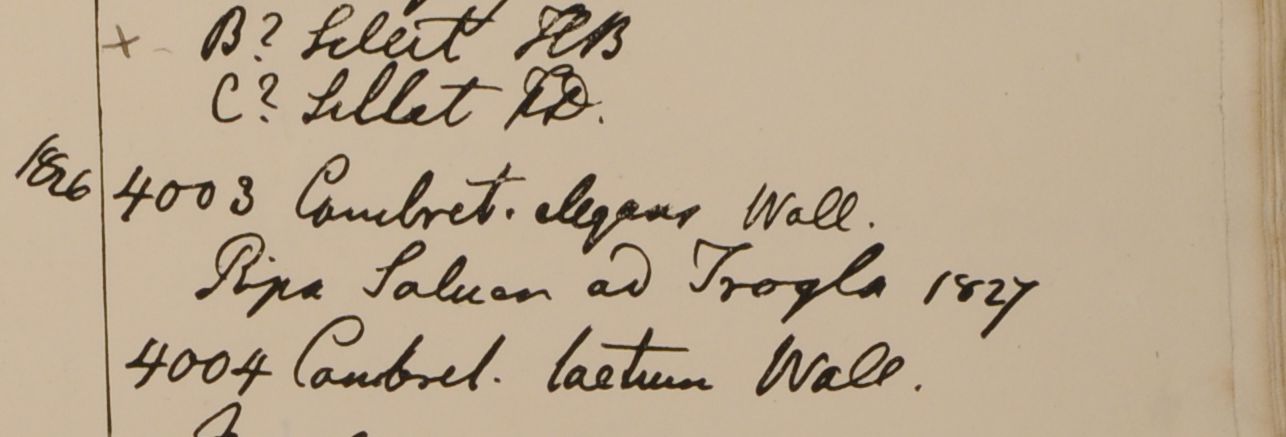 + B? Select HB
C? Sillet FD.
1826 4003 Combret. elegans Wall.
Ripa Saluen ad Trogla 1827
4004 Combret. laetum Wall.